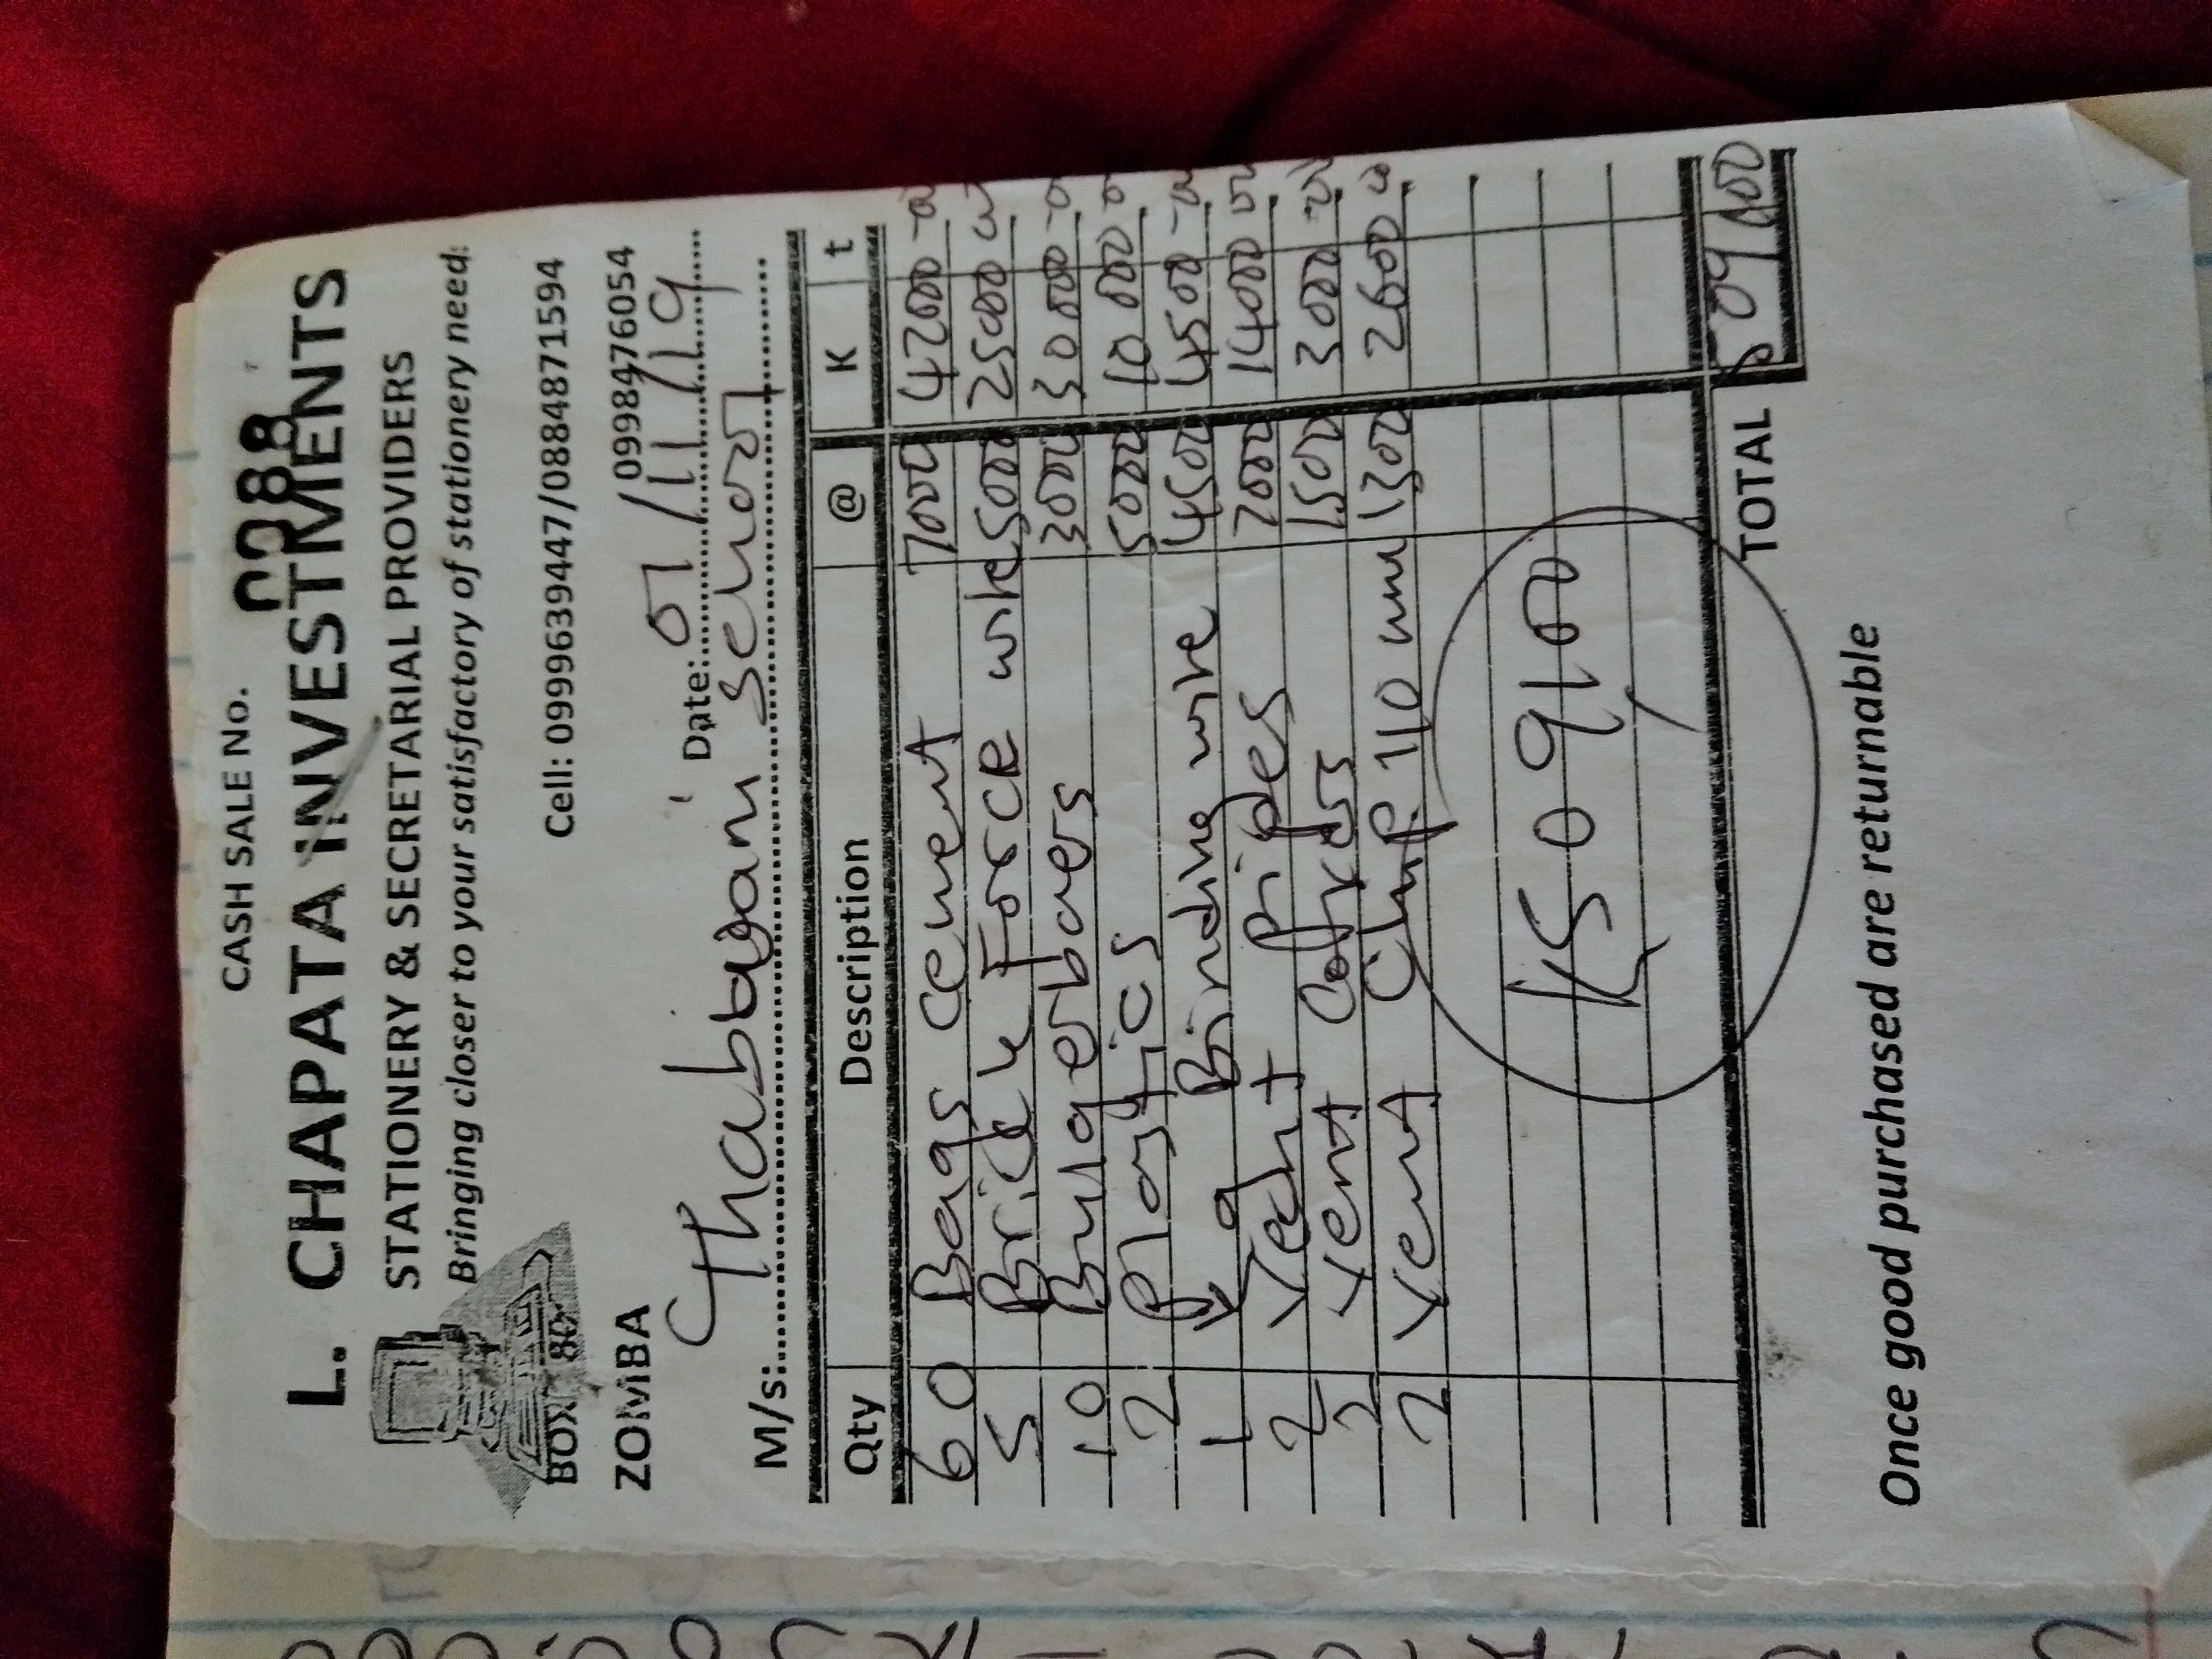 CASH SALE No. 0288
L. CHAPATA INVESTMENTS
STATIONERY & SECRETARIAL PROVIDERS
Bringing closer to your satisfactory of stationery need:
BOX 80
Cell: 0999639447/0884871594
ZOMBA /0998476054
Date: 01/11/19
M/s: Thabbwani School
Qty Description @ K t
60 Bags Cement 7000 42000 -00
5 Brick Force wire 5000 25000
10 Bulgerbars 3000 30000 -00
2 Plastics 5000 10000
1 kg Binding wire 4500 4500 -00
2 Vent Pipes 7000 14000 00
2 Vent Colfxers 1500 3000 -00
2 Vent Clmp 110 mm 1300 2600 00
K509100
TOTAL 509100
Once good purchased are returnable